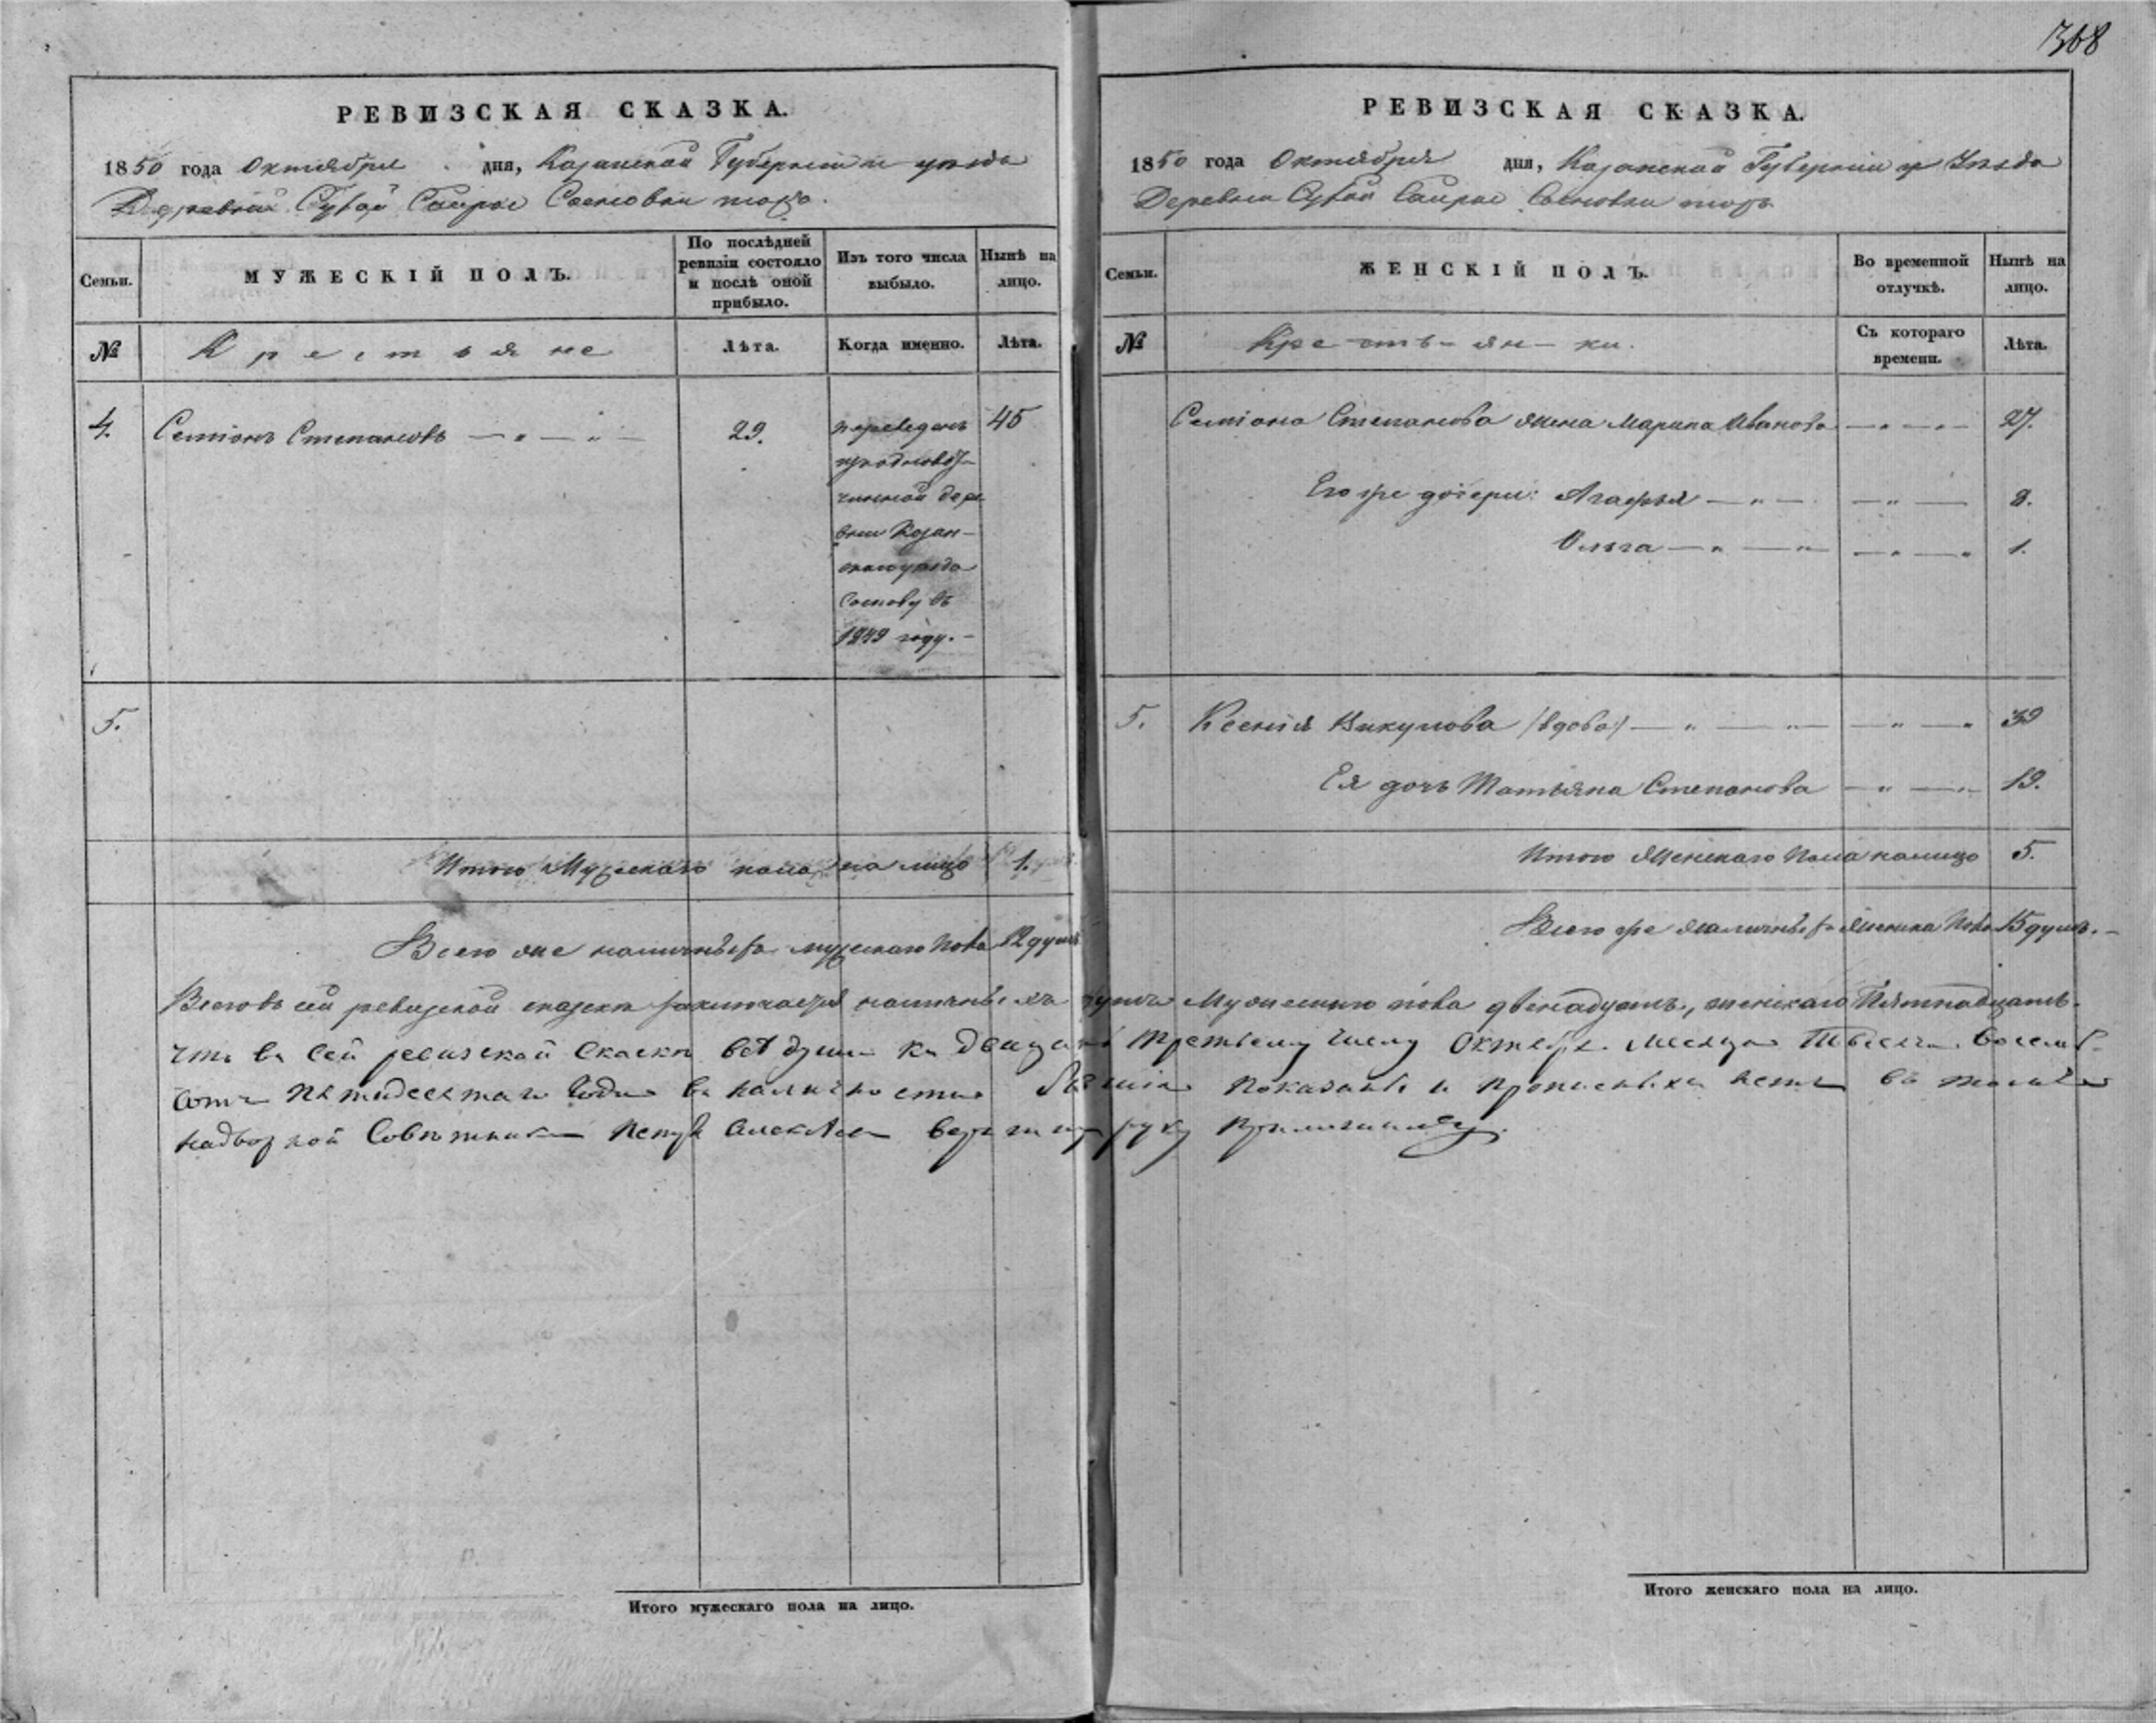 368
РЕВИЗСКАЯ СКАЗКА.
1850 года Октября дня, Казанской Губернии и уезда
Деревни Сухой Сосновки тожъ.
Семьи.
МУЖЕСКІЙ ПОЛЪ.
По послѣдней ревизіи состояло и послѣ оной прибыло.
Изъ того числа выбыло.
Нынѣ на лицо.
№
Крестьяне
Лѣта.
Когда именно.
Лѣта.
4.
Семіонъ Степановъ
29.
переведенъ
45
чинной дере
вни Казан-
скаго уезда
въ
1849 году.
5.
Итого Мужескаго пола на лицо 1.
Всего же наличныхъ мужескаго пола 12 душъ
РЕВИЗСКАЯ СКАЗКА.
1850 года Октября дня, Казанской Губерніи и Уѣзда
Деревни Сухой Сосновки тожъ
Семьи.
ЖЕНСКІЙ ПОЛЪ.
Во временной отлучкѣ.
Нынѣ на лицо.
№
Крестьянки.
Съ котораго времени.
Лѣта.
Семіона Степанова жена Марина Иванова 27.
Его же дочери: Агафья 8.
Ольга 1.
5. Ксенія Викулова (вдова) 39
Ея дочь Татьяна Степанова 19.
Итого Женскаго Пола налицо 5.
Всего же наличныхъ женска пола 15 душъ.
Всего въ сей ревизской сказке заключается наличныхъ душъ Мужескаго пола двенадцать, женскаго Пятнадцать.
Что въ Сей ревизской Скаске все души къ Двадцать третьему числу Октября Месяца Тысеча восемь-
сотъ Пятидесятаго Года въ наличности показаны и прописныхъ нетъ въ томъ
надворной Советникъ руку приложилъ.
Итого мужескаго пола на лицо.
Итого женскаго пола на лицо.